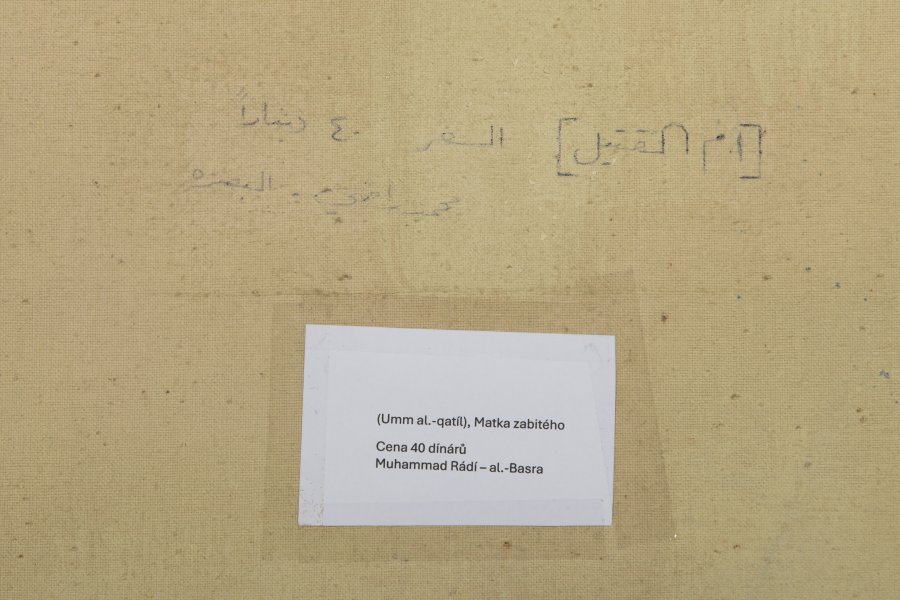 [أم القتيل] السعر ٤٠ ديناراً
محمد راضي - البصره
(Umm al.-qatíl), Matka zabitého
Cena 40 dínárů
Muhammad Rádí – al.-Basra